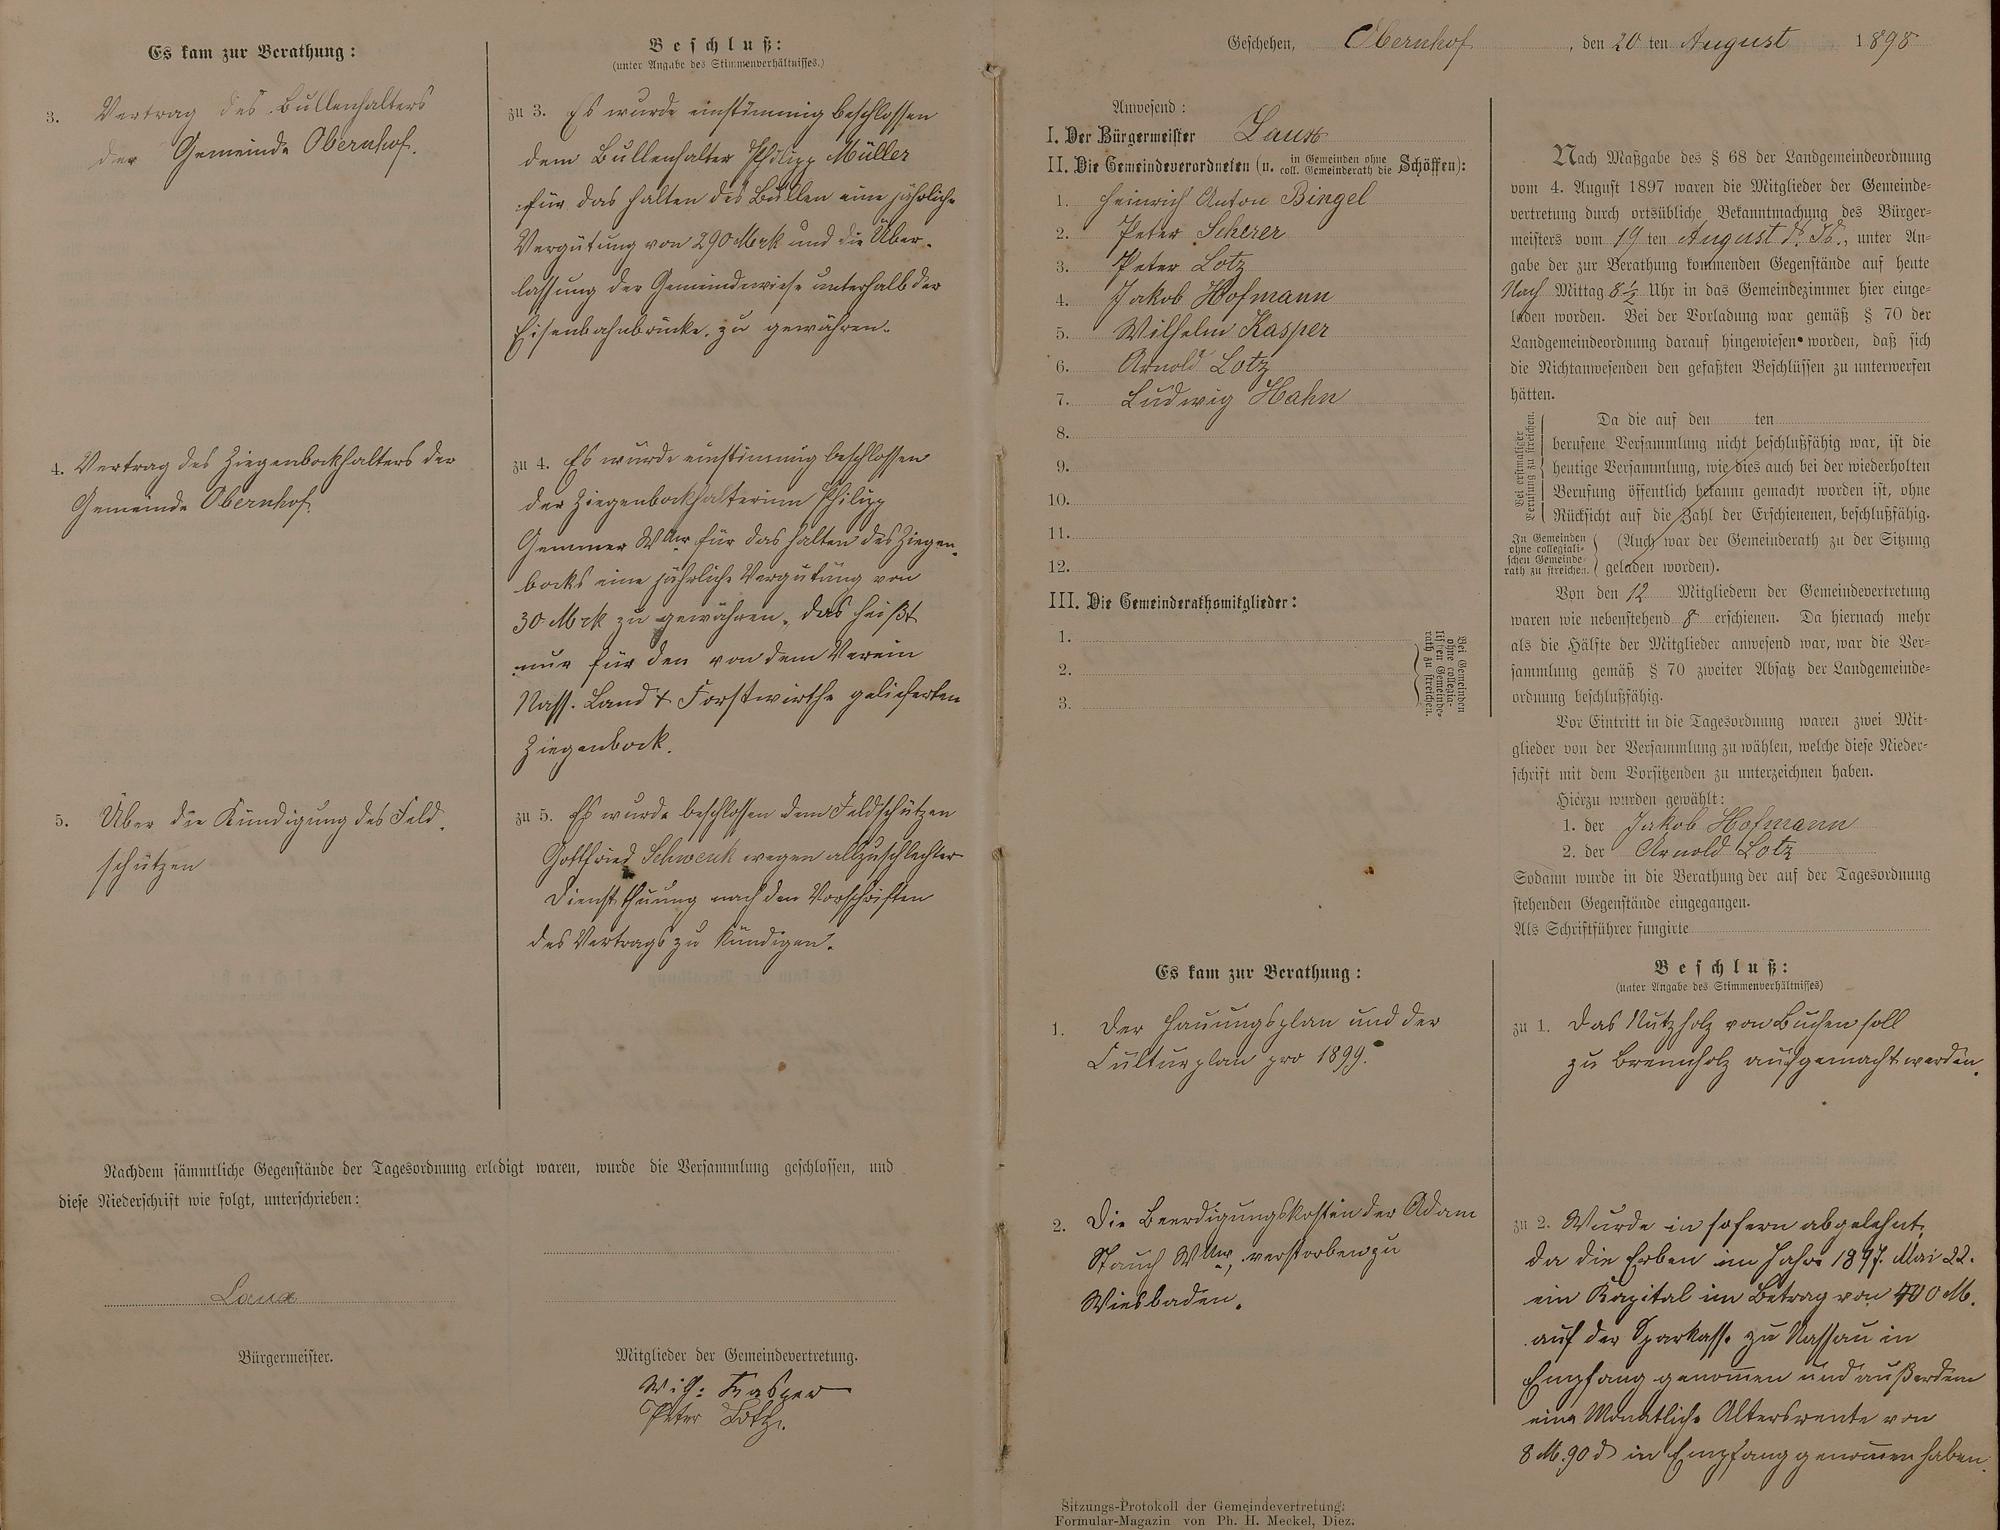 Es kam zur Berathung:
3. Vertrag des Bullenhalters
der Gemeinde Obernhof.
4. Vertrag des Ziegenbockhalters der
Gemeinde Obernhof
5. Über die Kündigung des Feld-
schützen
Beschluß:
(unter Angabe des Stimmenverhältnisses.)
zu 3. Es wurde einstimmig beschlossen
dem Bullenhalter Philipp Müller
für das Halten des Bullen eine jährliche
Vergütung von 290 Mrk und die Über-
lassung der Gemeindewiese unterhalb der
Eisenbahnbrücke, zu gewähren.
zu 4. Es wurde einstimmig beschlossen
der Ziegenbockhalterinn Philipp
Gemmer Wtw für das Halten des Ziegen-
bocks eine jährliche Vergütung von
30 Mrk zu gewähren, das heißt
nur für den von dem Verein
Nass. Land & Forstwirthe gelieferten
Ziegenbock.
zu 5. Es wurde beschlossen dem Feldschützen
Gottfried Schwenk wegen allzuschlechter
Dienstthuung nach den Vorschriften
des Vertrags zu kündigen.
Nachdem sämmtliche Gegenstände der Tagesordnung erledigt waren, wurde die Versammlung geschlossen, und
diese Niederschrift wie folgt, unterschrieben:
Laux
Bürgermeister.
Mitglieder der Gemeindevertretung.
Wilh: Kasper
Peter Lotz.
Geschehen, Obernhof, den 20 ten August 1898
Anwesend:
I. Der Bürgermeister Laux
II. Die Gemeindeverordneten (u. in Gemeinden ohne coll. Gemeinderath die Schöffen):
1. Heinrich Anton Bingel
2. Peter Scherer
3. Peter Lotz
4. Jakob Hofmann
5. Wilhelm Kasper
6. Arnold Lotz
7. Ludwig Hahn
8.
9.
10.
11.
12.
III. Die Gemeinderathsmitglieder:
1.
2.
3.
Bei Gemeinden
ohne collegia-
lischen Gemeinde-
rath zu streichen.
Nach Maßgabe des § 68 der Landgemeindeordnung
vom 4. August 1897 waren die Mitglieder der Gemeinde-
vertretung durch ortsübliche Bekanntmachung des Bürger-
meisters vom 19 ten August d. Js., unter An-
gabe der zur Berathung kommenden Gegenstände auf heute
Nach Mittag 8½ Uhr in das Gemeindezimmer hier einge-
laden worden. Bei der Vorladung war gemäß § 70 der
Landgemeindeordnung darauf hingewiesen worden, daß sich
die Nichtanwesenden den gefaßten Beschlüssen zu unterwerfen
hätten.
Bei erstmaliger
Berufung zu streichen.
Da die auf den ten
berufene Versammlung nicht beschlußfähig war, ist die
heutige Versammlung, wie dies auch bei der wiederholten
Berufung öffentlich bekannt gemacht worden ist, ohne
Rücksicht auf die Zahl der Erschienenen, beschlußfähig.
In Gemeinden
ohne collegiali-
schen Gemeinde-
rath zu streichen.
(Auch war der Gemeinderath zu der Sitzung
geladen worden).
Von den 12 Mitgliedern der Gemeindevertretung
waren wie nebenstehend 8 erschienen. Da hiernach mehr
als die Hälfte der Mitglieder anwesend war, war die Ver-
sammlung gemäß § 70 zweiter Absatz der Landgemeinde-
ordnung beschlußfähig.
Vor Eintritt in die Tagesordnung waren zwei Mit-
glieder von der Versammlung zu wählen, welche diese Nieder-
schrift mit dem Vorsitzenden zu unterzeichnen haben.
Hierzu wurden gewählt:
1. der Jakob Hofmann
2. der Arnold Lotz
Sodann wurde in die Berathung der auf der Tagesordnung
stehenden Gegenstände eingegangen.
Als Schriftführer fungirte
Es kam zur Berathung:
1. Der Hauungsplan und der
Culturplan pro 1899.
2. Die Beerdigungskosten der Adam
Stauch Wtw, verstorben zu
Wiesbaden.
Beschluß:
(unter Angabe des Stimmenverhältnisses)
zu 1. Das Nutzholz von Buchen soll
zu Brennholz aufgemacht werden.
zu 2. Wurde in sofern abgelehnt,
da die Erben im Jahre 1897. Mai 22.
ein Kapital im Betrag von 400 M.
auf der Sparkasse zu Nassau in
Empfang genommen und außerdem
eine Monatliche Altersrente von
8 M. 90 d in Empfang genommen haben.
Sitzungs-Protokoll der Gemeindevertretung.
Formular-Magazin von Ph. H. Meckel, Diez.